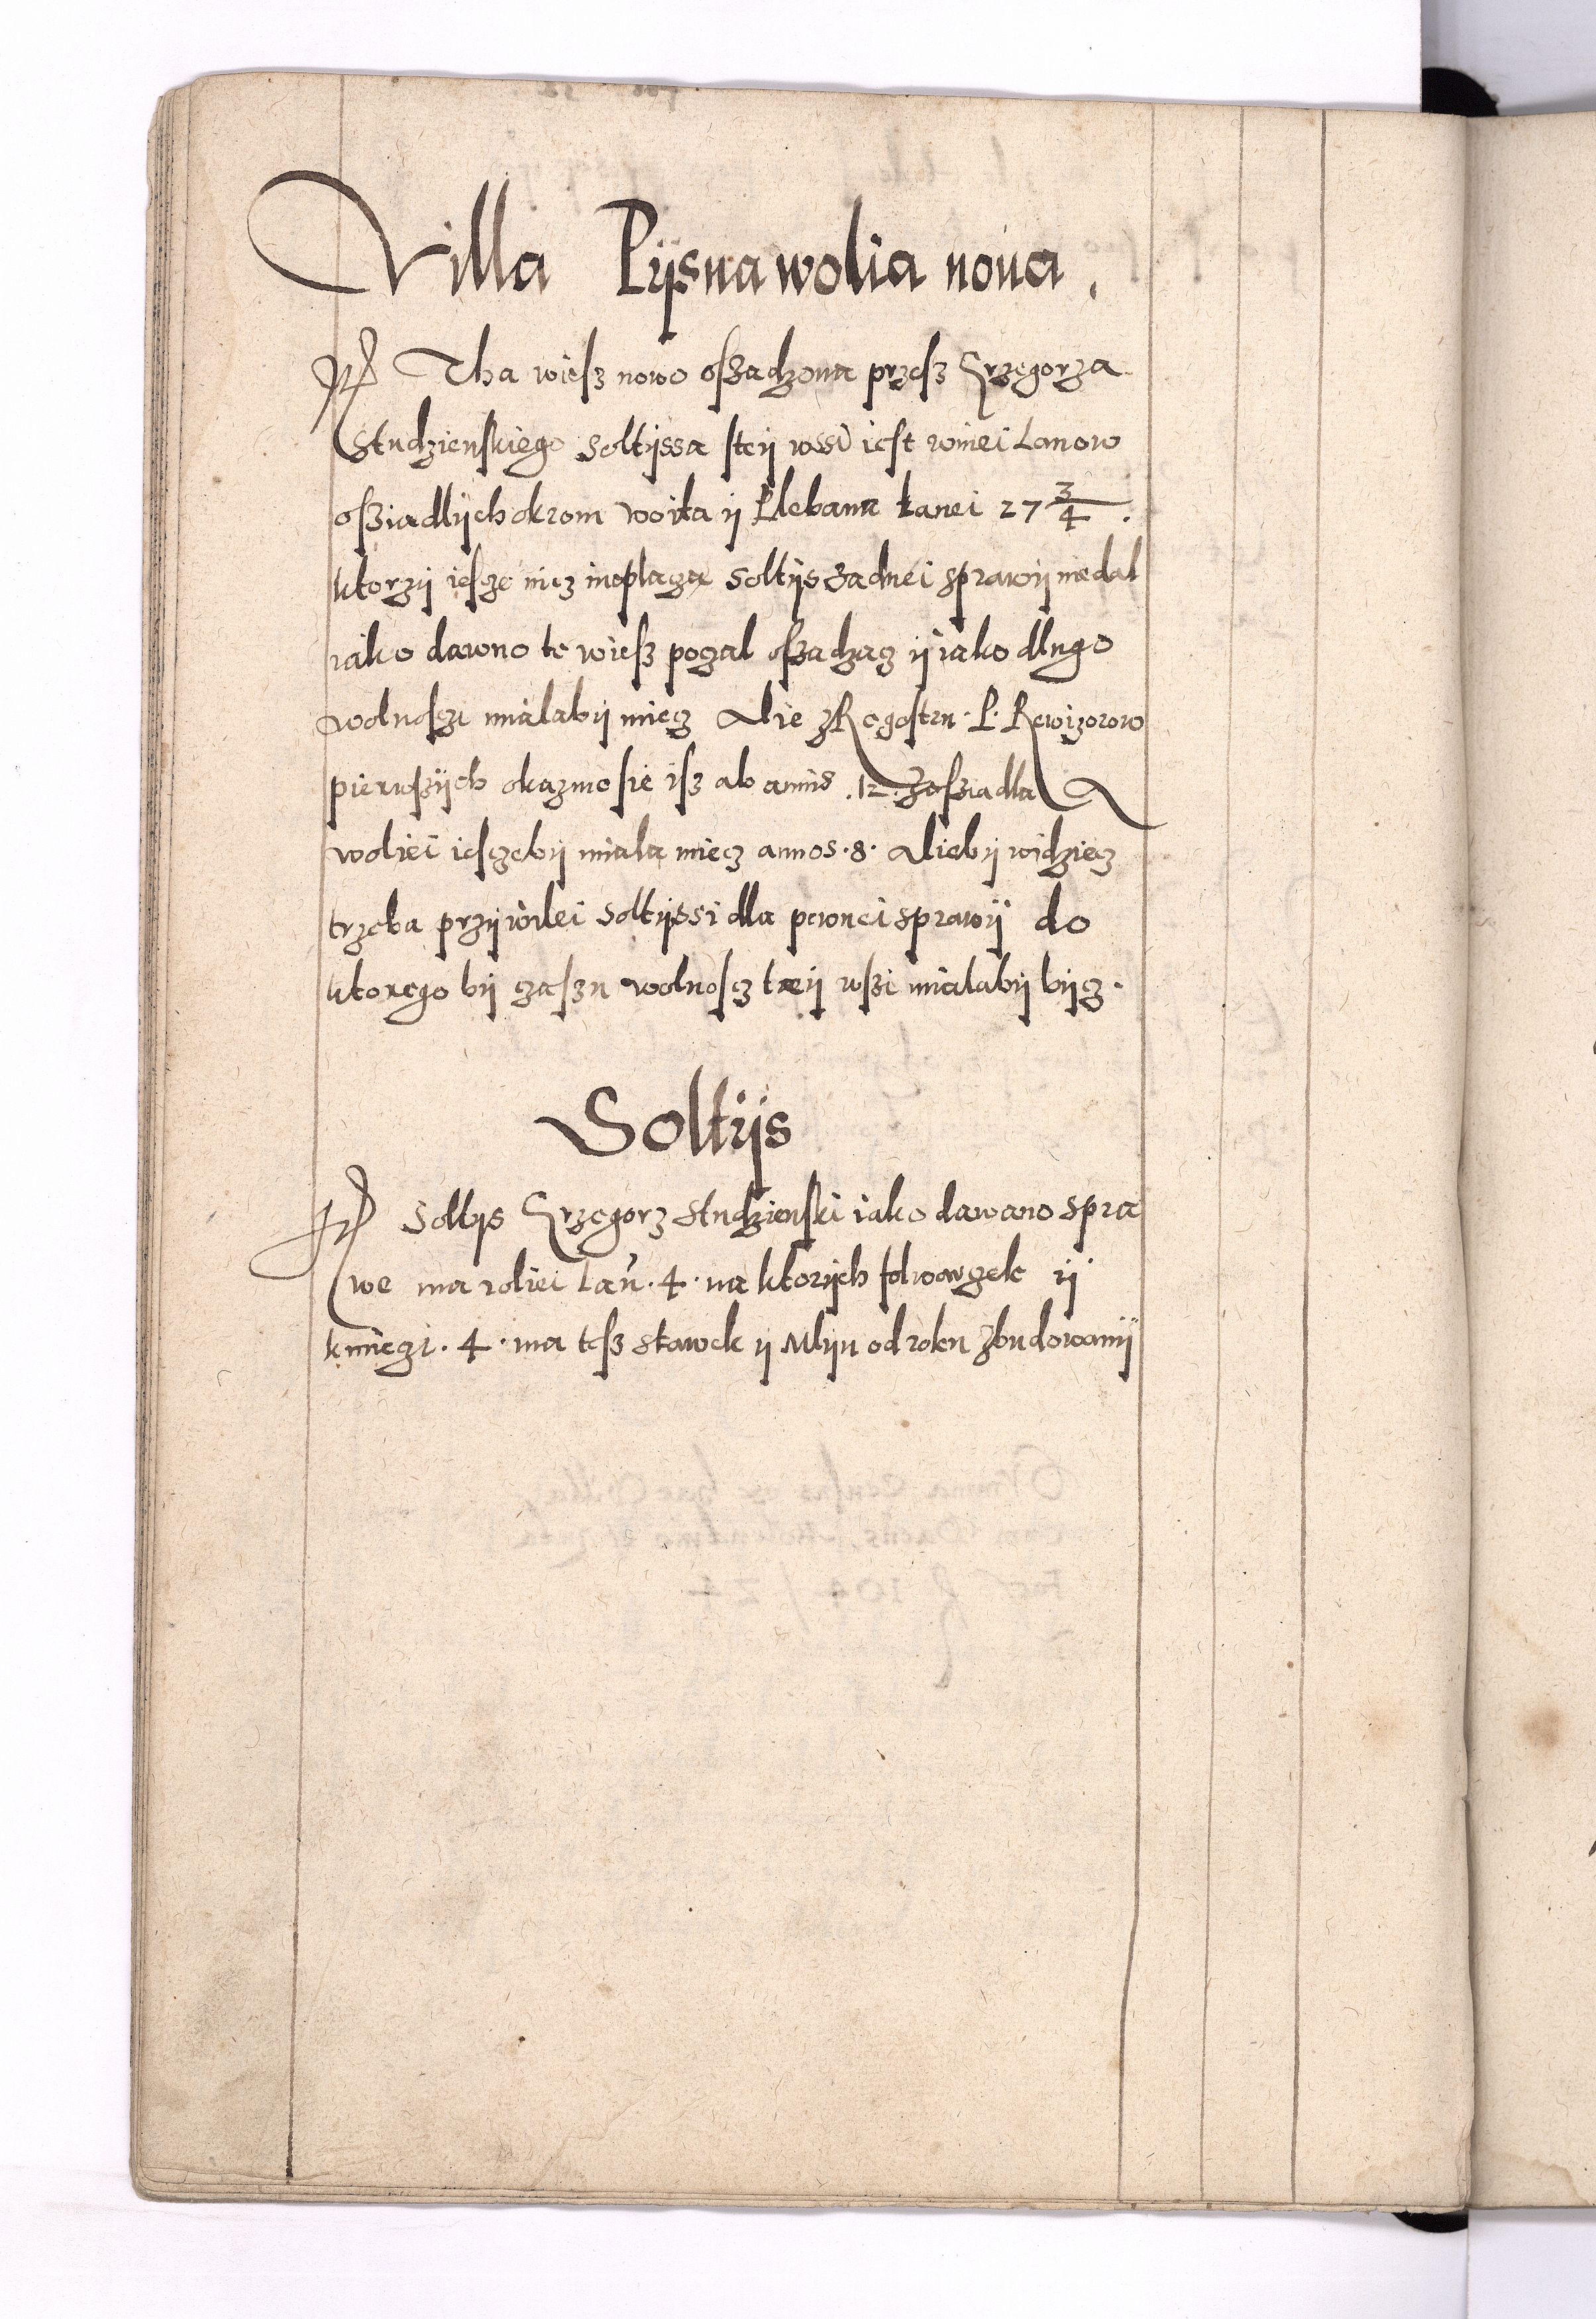 Villa Pÿsna wolia noua.
Tha wiesz nowo oszadzona przesz Grzegorza
Studzienskiego Soltÿssa steÿ wssi iest wniei Lanow
osziadlÿch okrom woita ÿ Plebana Lanei 27 3/4.
ktorzÿ iesze nicz nieplacza Soltÿs zadnei sprawÿ niedal
iako dawno te wiesz poczal oszadzacz ÿ iako dlugo
wolnosczi mialabÿ miecz Alie z Regestru P. Rewizorow
pierwszÿch okazuio sie isz ab annis .12. zasziadla A
woliei iesczebÿ miala miecz annos .8. Aliebÿ widziecz
trzeba przÿwilei Soltÿssi dla pewnei sprawÿ do
ktorego bÿ czaszu wolnosc teÿ wszi mialabÿ bÿcz.
Soltÿs
Soltÿs Grzegorz Studzienski iako dawano spra
we ma roliei Lan. 4. na ktorÿch folwarczek ÿ
kmieczi. 4. ma tesz stawek ÿ Mlÿn od roku zbudowanÿ